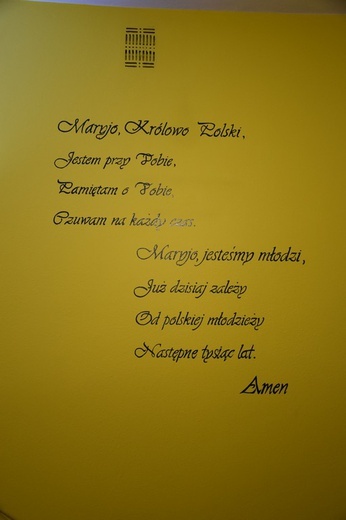 Maryjo, Królowo Polski,
Jestem przy Tobie,
Pamiętam o Tobie,
Czuwam na każdy czas.
Maryjo, jesteśmy młodzi,
Już dzisiaj zależy
Od polskiej młodzieży
Następne tysiąc lat.
Amen